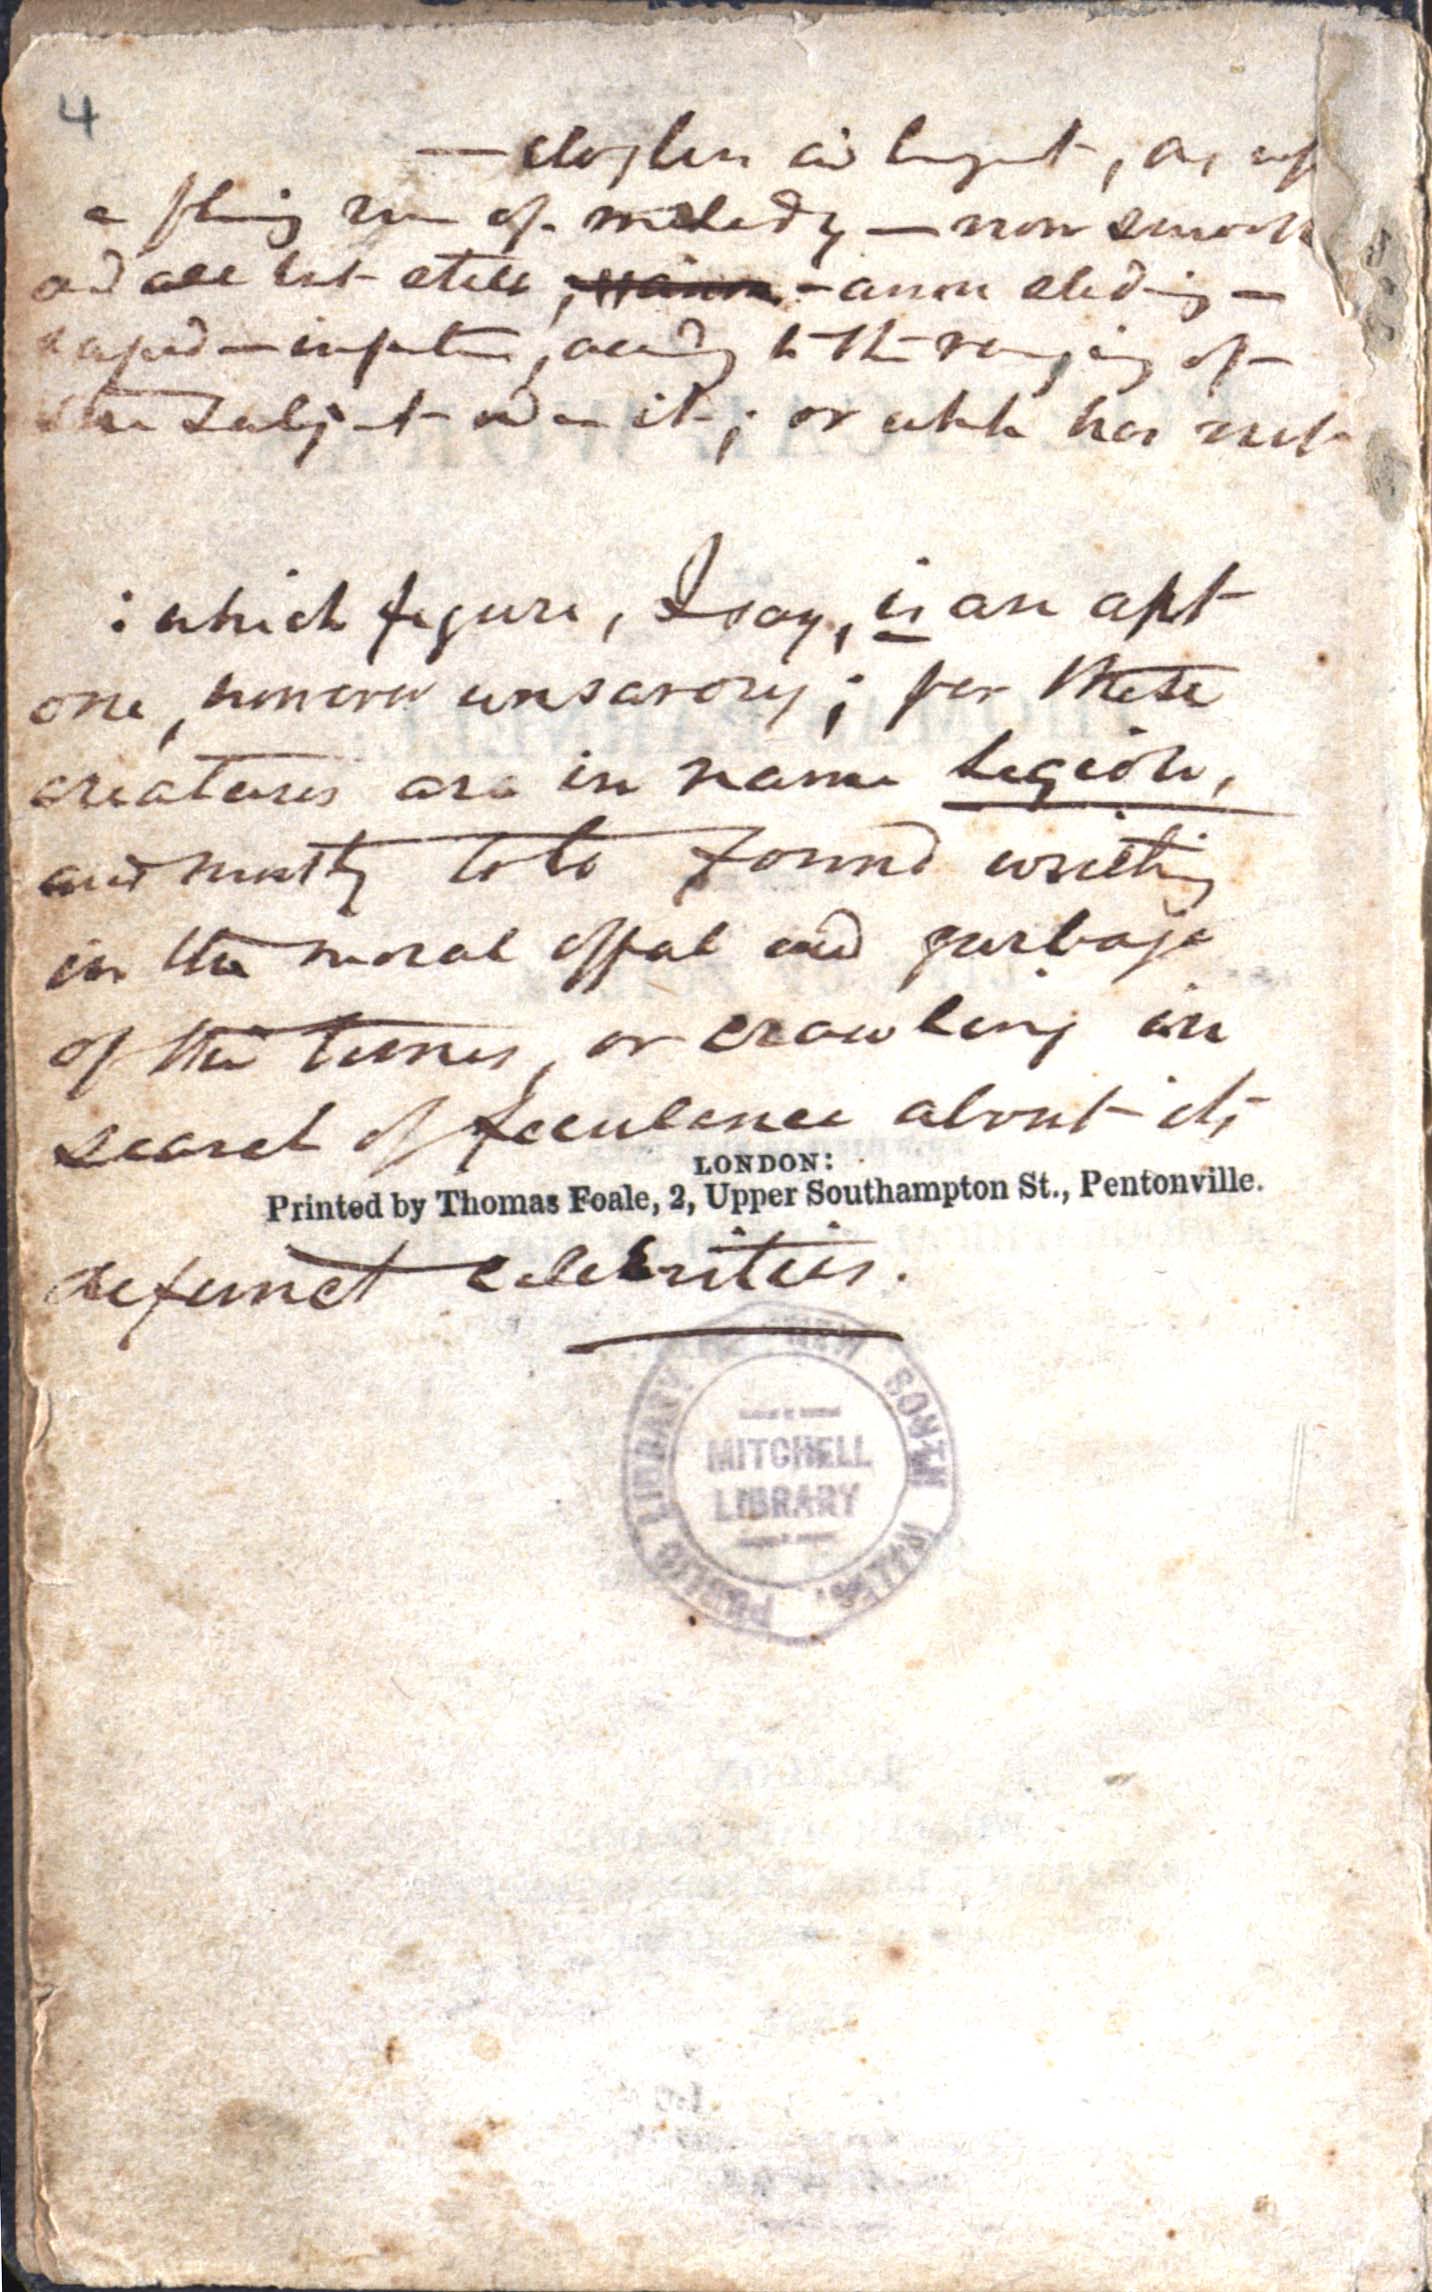 4
—
a flowing run of melody — now smooth
and all but still, — anon sliding —
rapid — impetuous, according to the ranging of
the subject ; or which has not
: which figure, I say, is an apt
one, however unsavory; for these
creatures are in name Legion,
and mostly to be found writhing
in the moral offal and garbage
of the times, or crawling in
search of feculence about its
LONDON:
Printed by Thomas Foale, 2, Upper Southampton St., Pentonville.
defunct celebrities.
PUBLIC LIBRARY NEW SOUTH WALES.
MITCHELL
LIBRARY